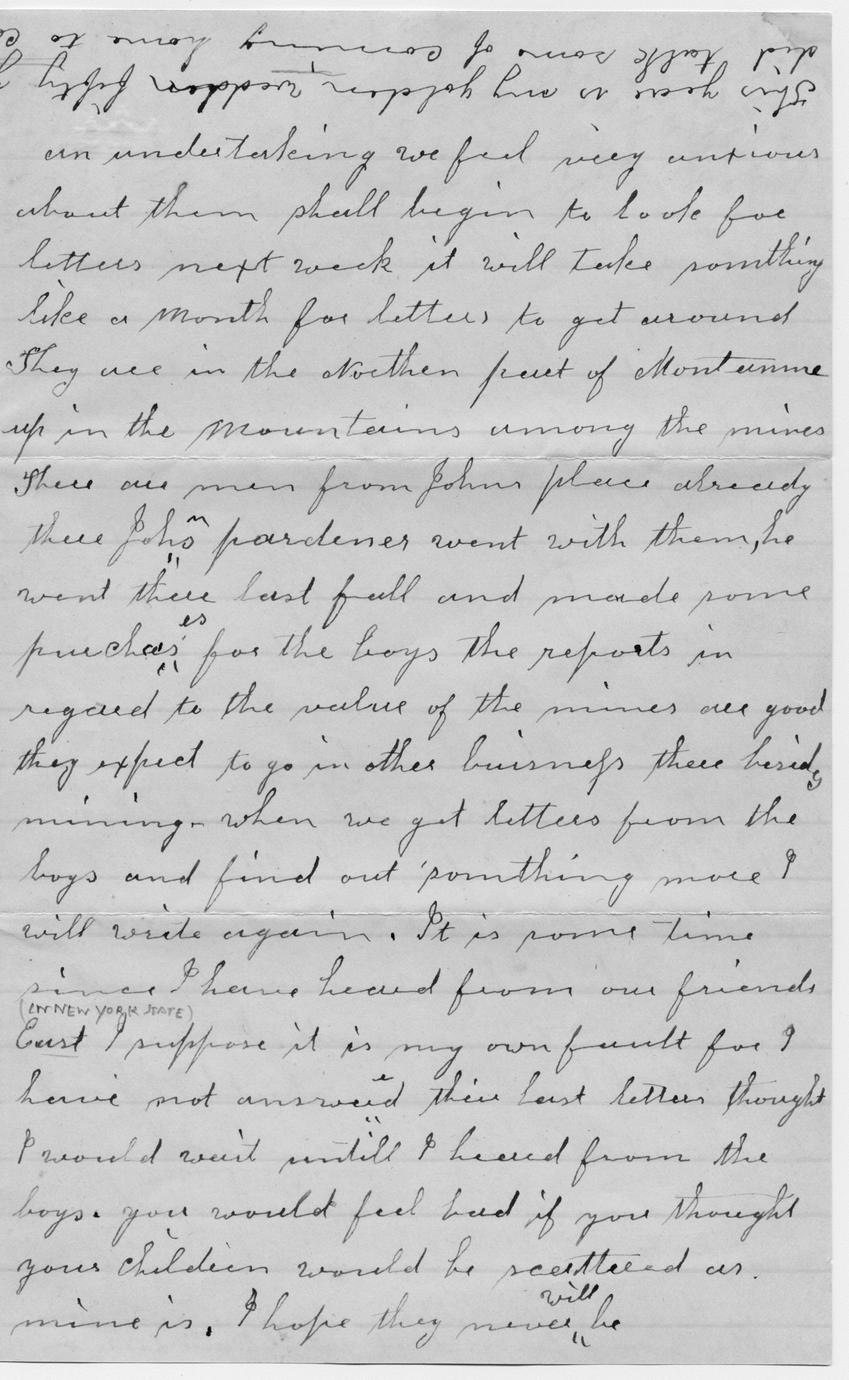 This year is my golden wedden fifty
did talk some of comming home to
an undertaking we feel very anxious
about them shall begin to look for
letters next week it will take somthing
like a Month for letters to get around
They are in the Northen part of Montanna
up in the Mountains among the mines
There are men from Johns place already
there Johns pardener went with them, he
went there last fall and made some
purchases for the boys the reports in
regard to the value of the mines are good
they expect to go in other buisness there besides
mining - when we get letters from the
boys and find out somthing more I
will write again. It is some time
since I have heard from our friends
(IN NEW YORK STATE)
East I suppose it is my own fault for I
have not answered their last letters thought
I would wait untill I heard from the
boys. you would feel bad if you thought
your children would be scattered as.
mine is. I hope they never will be